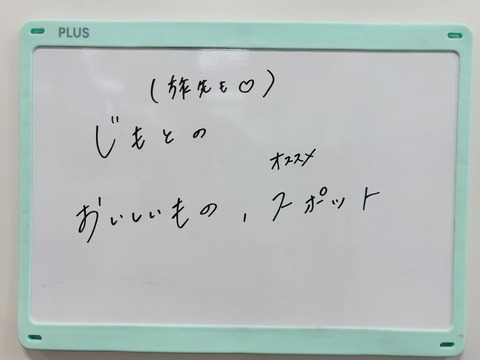 PLUS
(旅先も♡)
じもとの
オススメ
おいしいもの、スポット